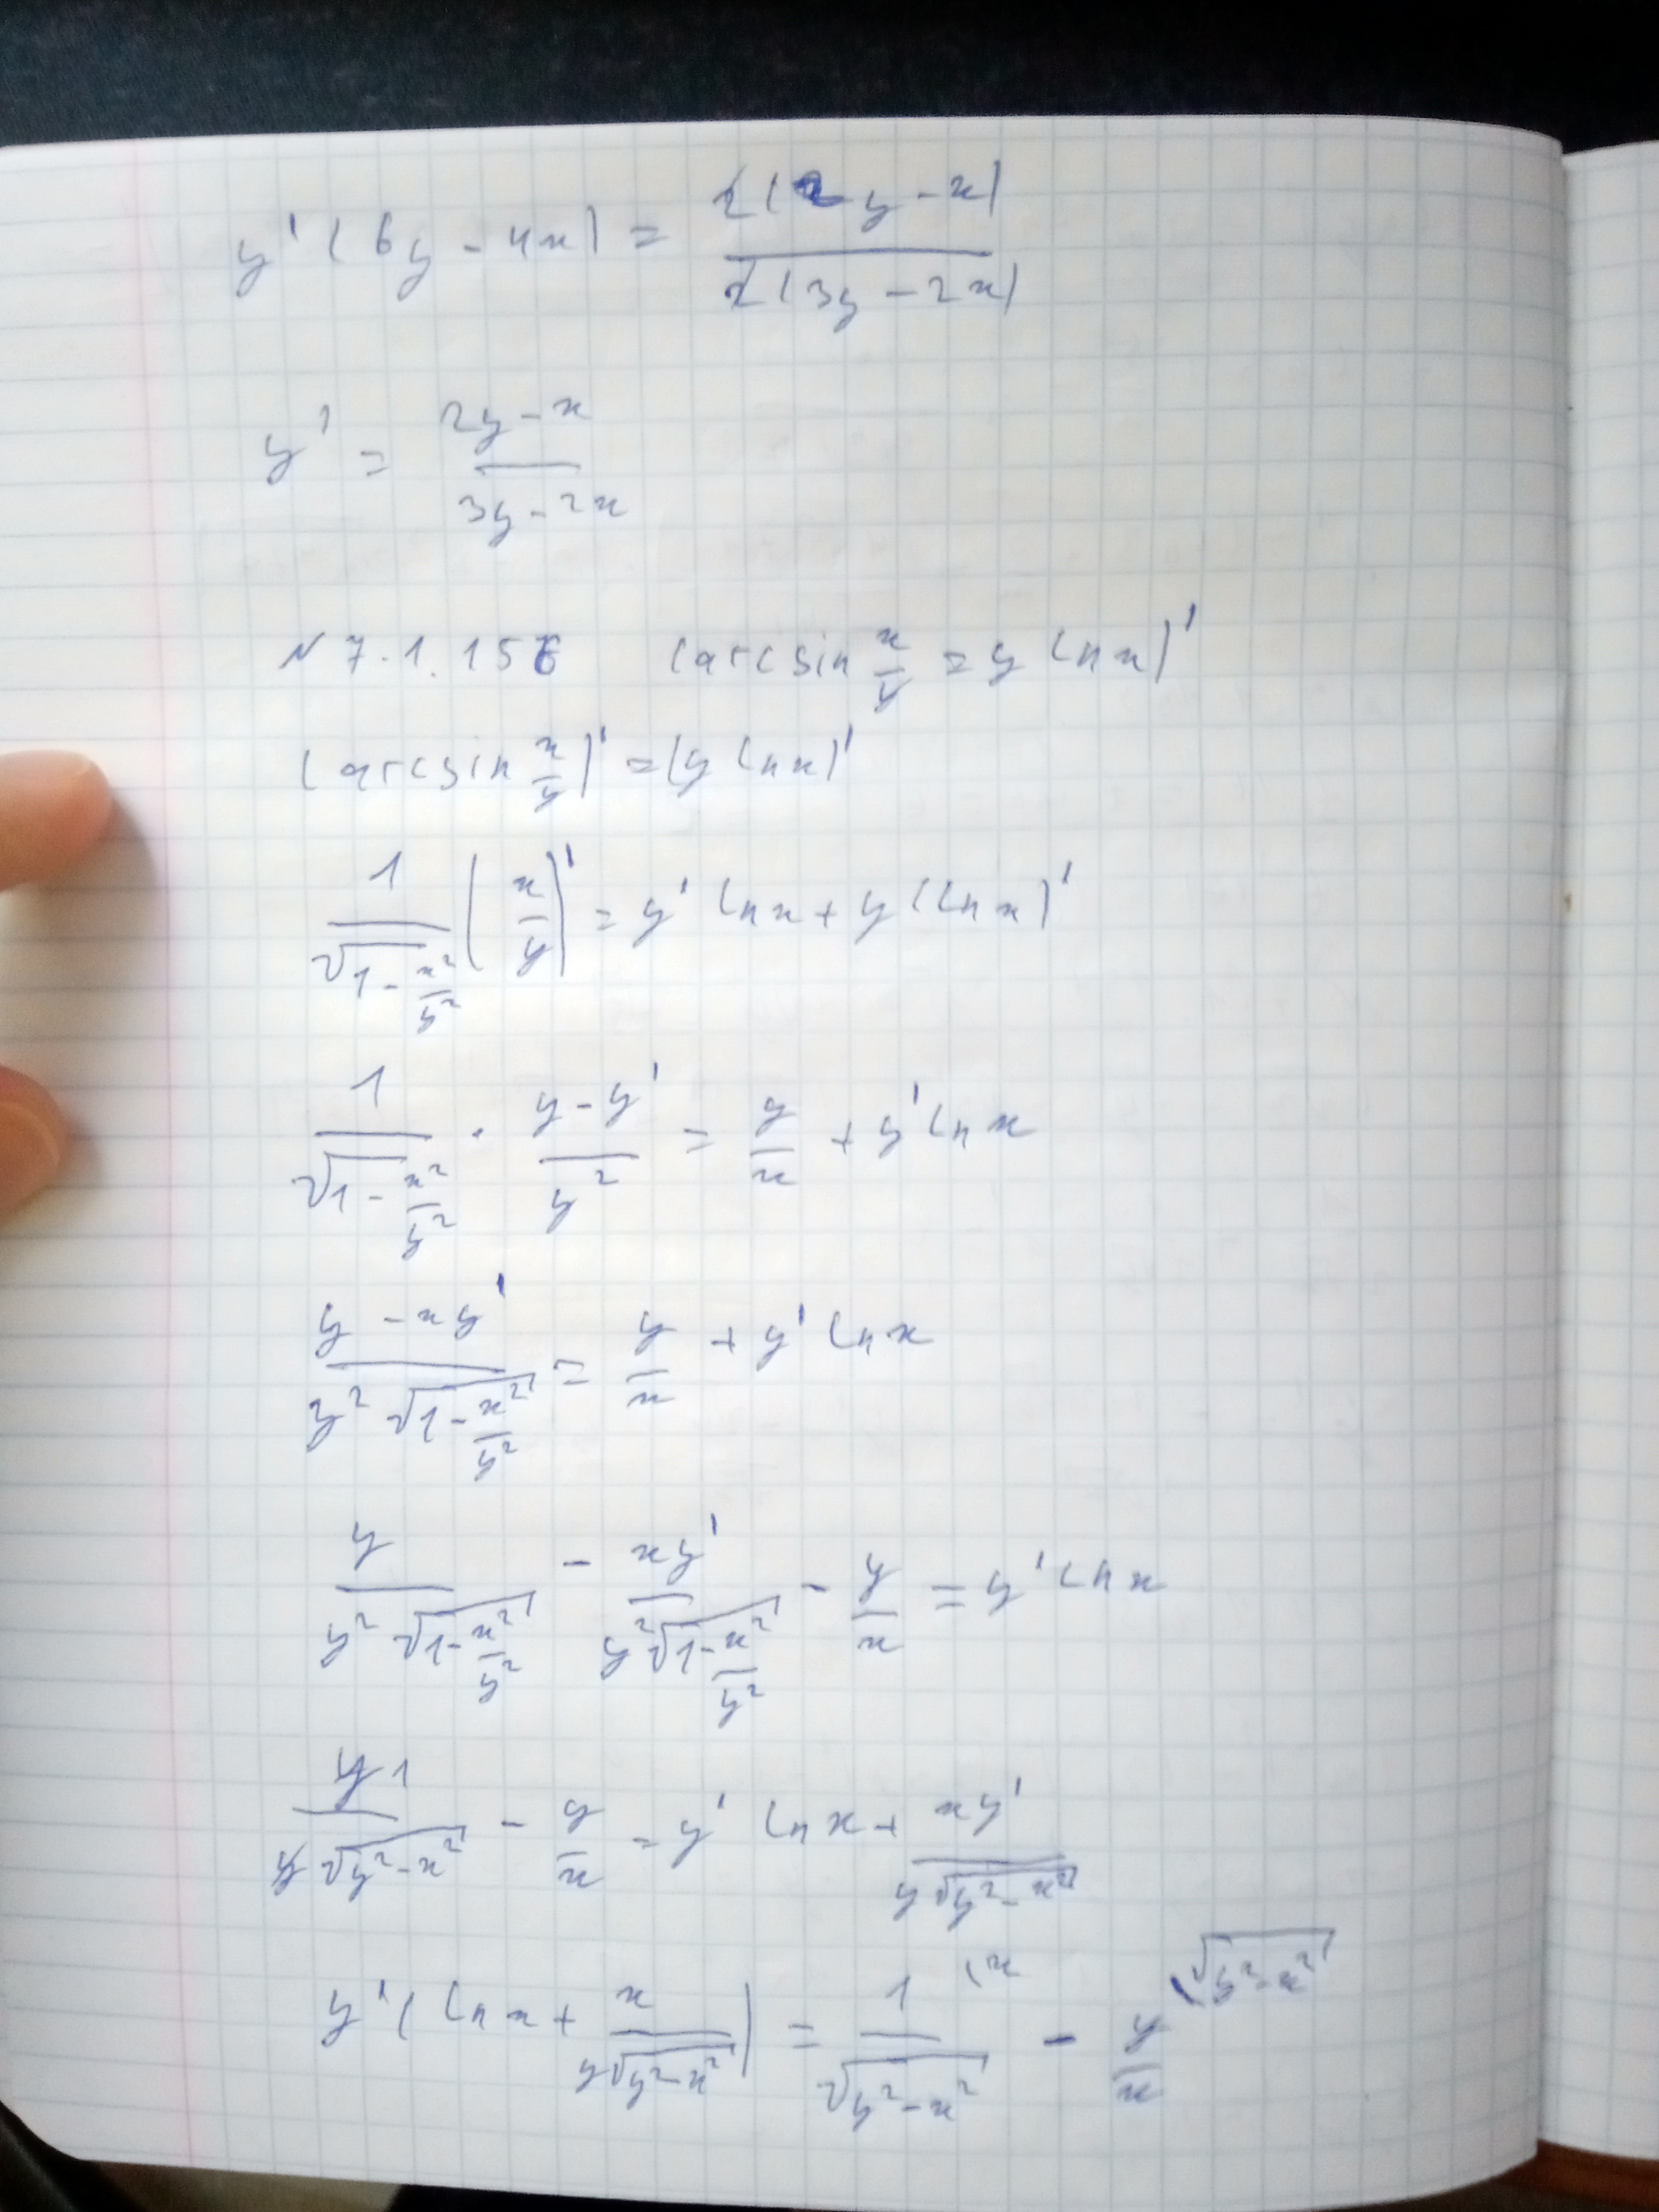 y' (6y - 4x) = 2(2y - x) / 2(3y - 2x)
y' = (2y - x) / (3y - 2x)
N 7.1.156 (arcsin x/y = y ln x)'
(arcsin x/y)' = (y ln x)'
1/√(1 - x²/y²) (x/y)' = y' ln x + y (ln x)'
1/√(1 - x²/y²) · (y - y')/y² = y/x + y' ln x
(y - xy')/(y² √(1 - x²/y²)) = y/x + y' ln x
y/(y² √(1 - x²/y²)) - xy'/(y² √(1 - x²/y²)) - y/x = y' ln x
y 1/(y √(y² - x²)) - y/x = y' ln x + xy'/(y √(y² - x²))
y' (ln x + x/(y √(y² - x²))) = 1/√(y² - x²) (x - y/x (√(y² - x²)